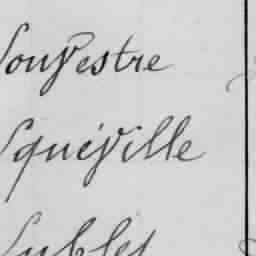 Souvestre
Squéville
Subles